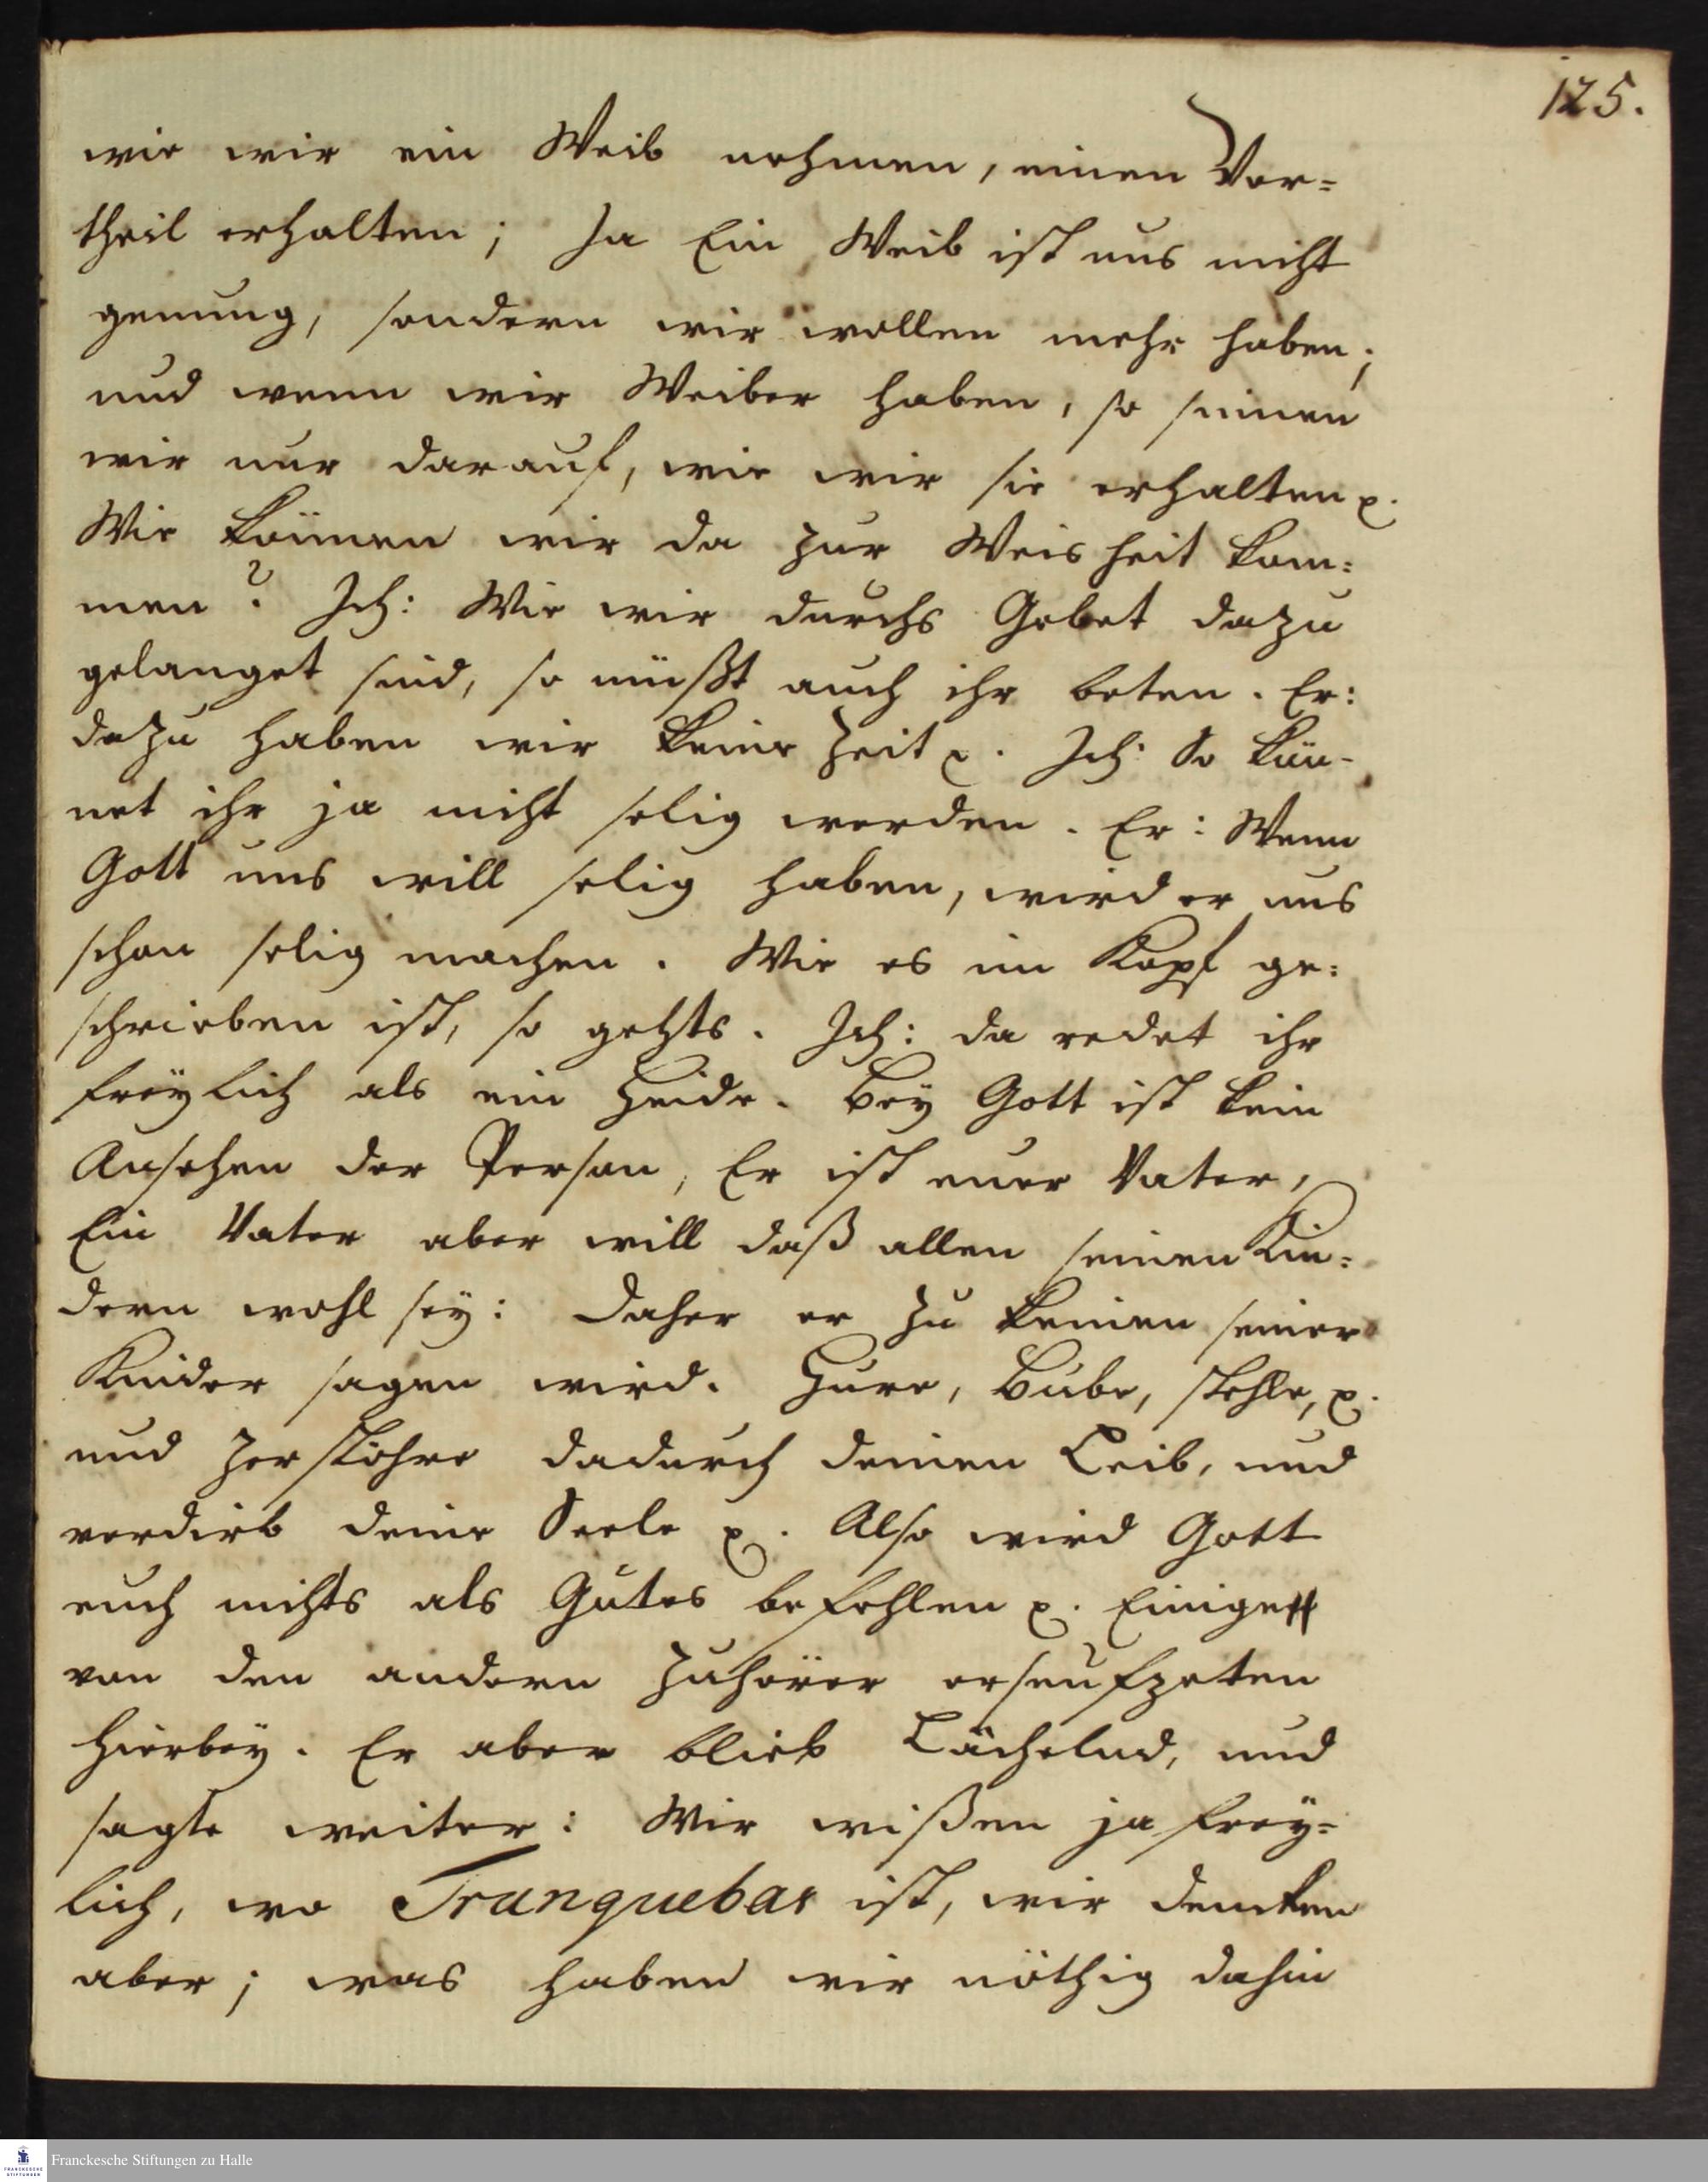 125.
wie wir ein Weib nehmen, einen Vor=
theil erhalten; Ja Ein Weib ist uns nicht
genung, sondern wir wollen mehr haben;
und wenn wir Weiber haben, so sinnen
wir nur darauf, wie wir sie erhalten p.
Wie können wir da zur Weisheit kom=
men? Ich: Wie wir durchs Gebet dazu
gelanget sind, so müßt auch ihr beten. Er:
dazu haben wir keine Zeit p. Ich: So kön-
net ihr ja nicht selig werden. Er: Wenn
Gott uns will selig haben, wird er uns
schon selig machen. Wie es im Kopf ge=
schrieben ist, so gehts. Ich: da redet ihr
freylich als ein Heide. Bey Gott ist kein
Ansehen der Person, Er ist euer Vater,
Ein Vater aber will daß allen seinen Kin=
dern wohl sey: daher er zu keinen seiner
Kinder sagen wird. Hure, Bube, stehle, p.
und zerstöhre dadurch deinen Leib, und
verdirb deine Seele p. Also wird Gott
euch nichts als Gutes befehlen p. Einige
von den andern Zuhörer erseufzeten
hierbey. Er aber blieb Lächelnd, und
sagte weiter: Wir wißen ja frey=
lich, wo Tranquebar ist, wir dencken
aber; was haben wir nöthig dahin
Franckesche Stiftungen zu Halle
FRANCKESCHE
STIFTUNGEN